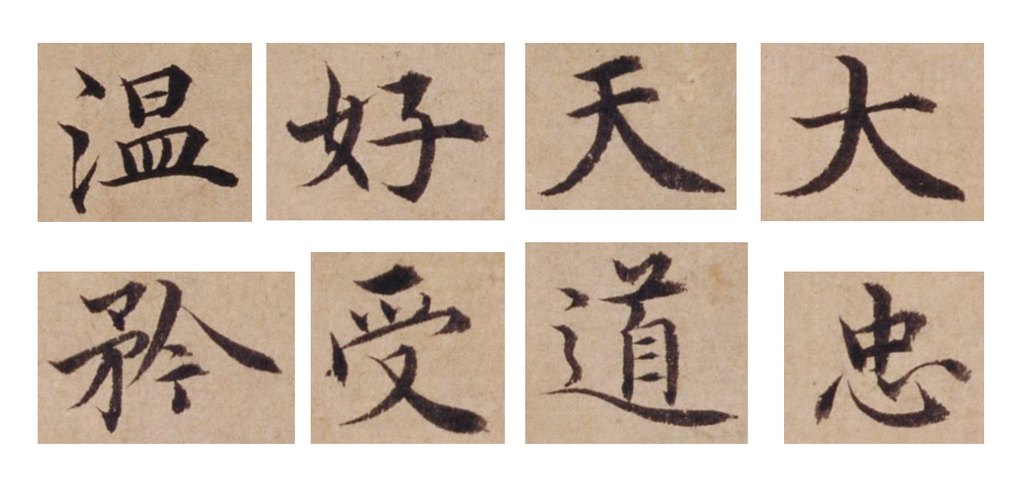 温好天大
矜受道忠